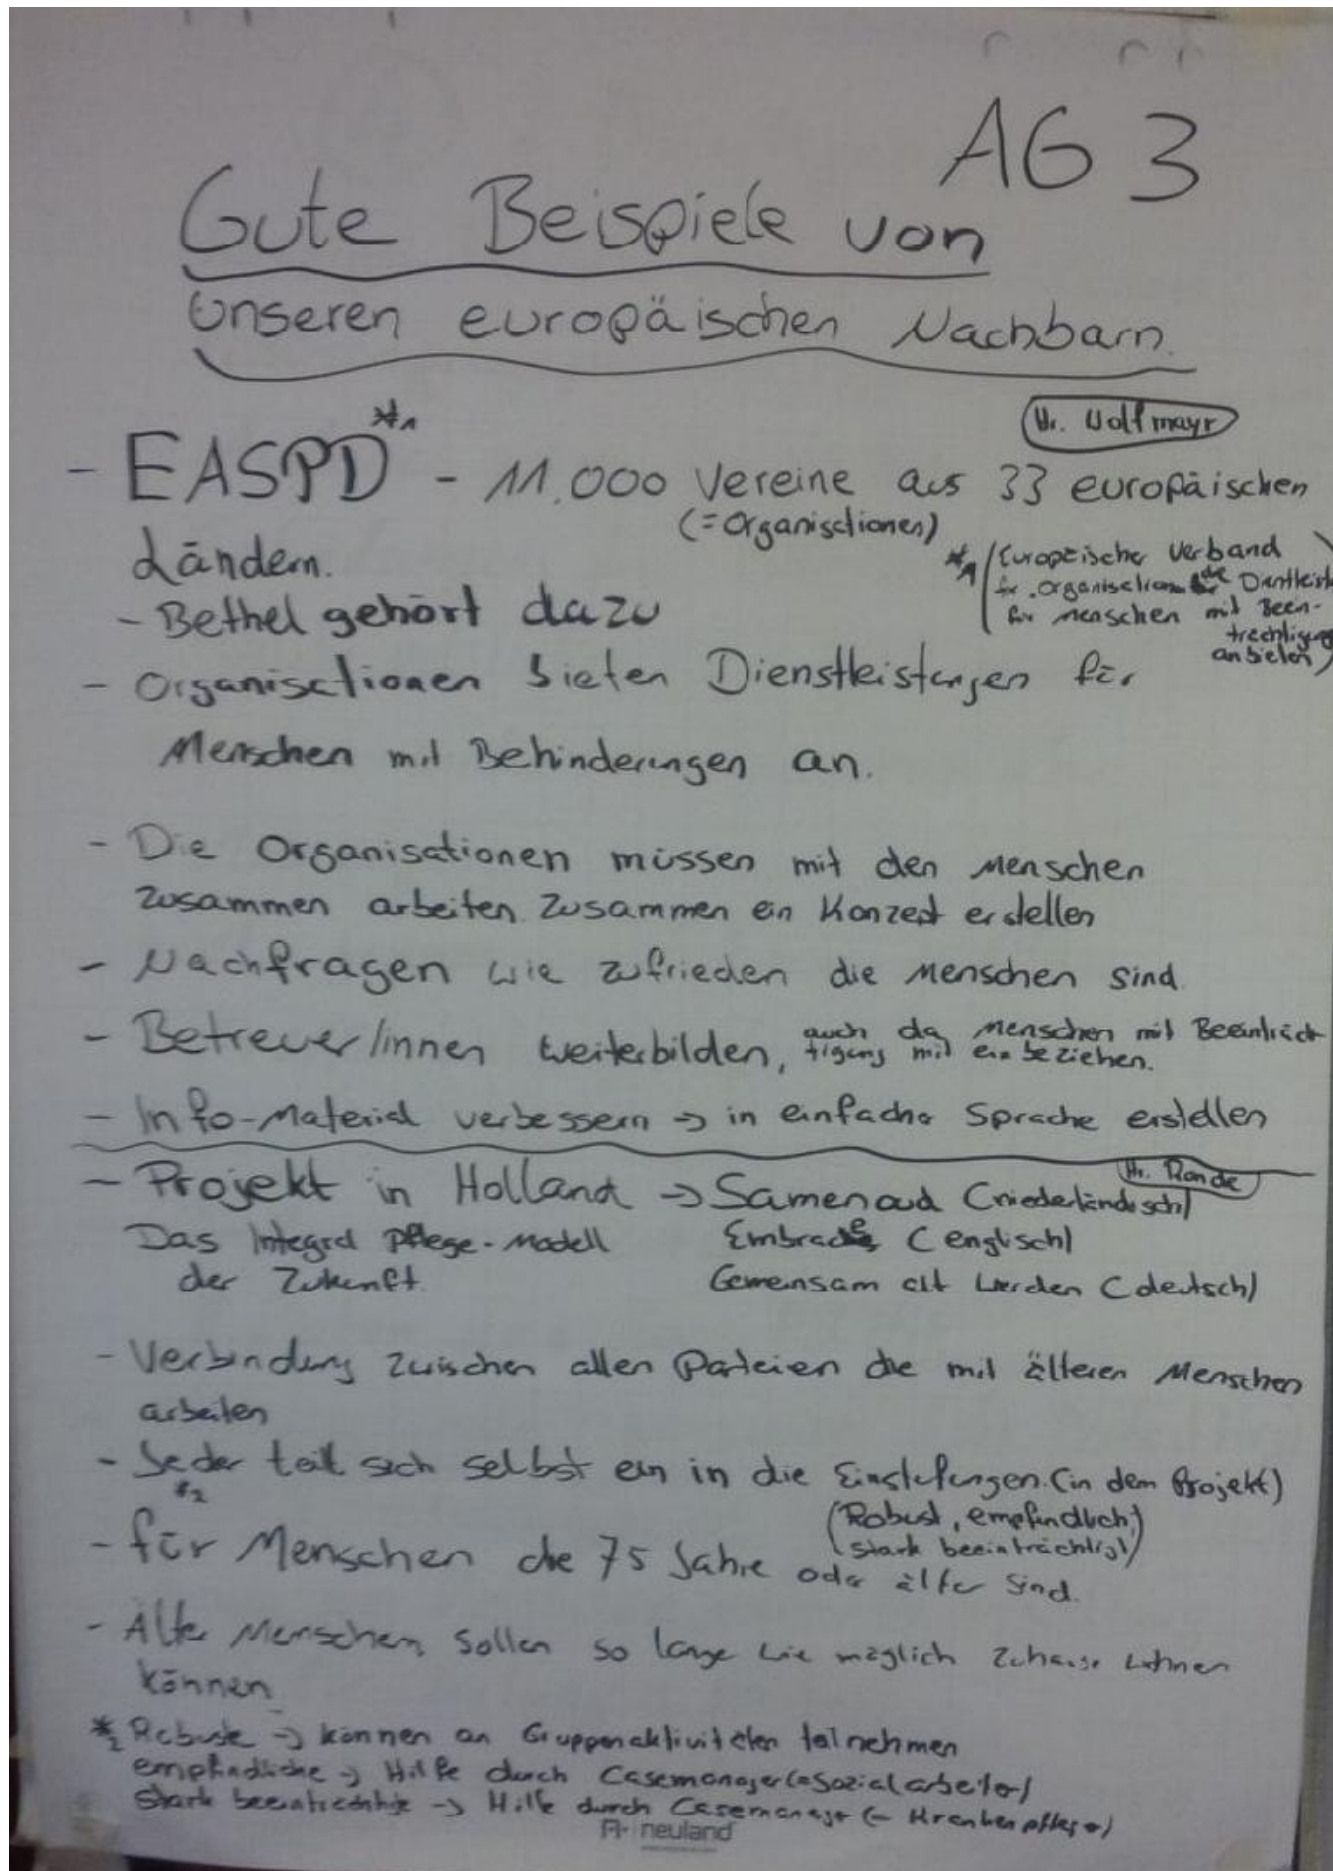 AG 3
Gute Beispiele von
unseren europäischen Nachbarn.
Hr. Wolfmayr
- EASPD *1 - 11.000 Vereine aus 33 europäischen
(=Organisationen)
Ländern.
*1 (Europäischer Verband
für Organisationen die Dienstleist
für Menschen mit Been-
trechtigung
anbieten)
- Bethel gehört dazu
- Organisationen bieten Dienstleistungen für
Menschen mit Behinderungen an.
- Die Organisationen müssen mit den Menschen
zusammen arbeiten. Zusammen ein Konzept erstellen
- Nachfragen wie zufrieden die Menschen sind.
- Betreuer/innen weiterbilden, auch da Menschen mit Beeinträch
tigung mit ein beziehen.
- Info-Material verbessern → in einfacher Sprache erstellen
Hr. Ronde
- Projekt in Holland → Samenoud (niederländisch)
Das Integral Pflege-Modell Embrace (englisch)
der Zukunft. Gemeinsam alt werden (deutsch)
- Verbindung zwischen allen Parteien die mit älteren Menschen
arbeiten
- Jeder teilt sich selbst ein in die Einstufungen. (in dem Projekt)
*2 (Robust, empfindlich,
stark beeinträchtigt)
- für Menschen die 75 Jahre oder älter sind.
- Alte Menschen sollen so lange wie möglich zuhause wohnen
können.
*2 Robuste → können an Gruppenaktivitäten teilnehmen
empfindliche → Hilfe durch Casemanager (=Sozialarbeiter)
stark beeinträchtigte → Hilfe durch Casemanager (= Krankenpfleger)
neuland